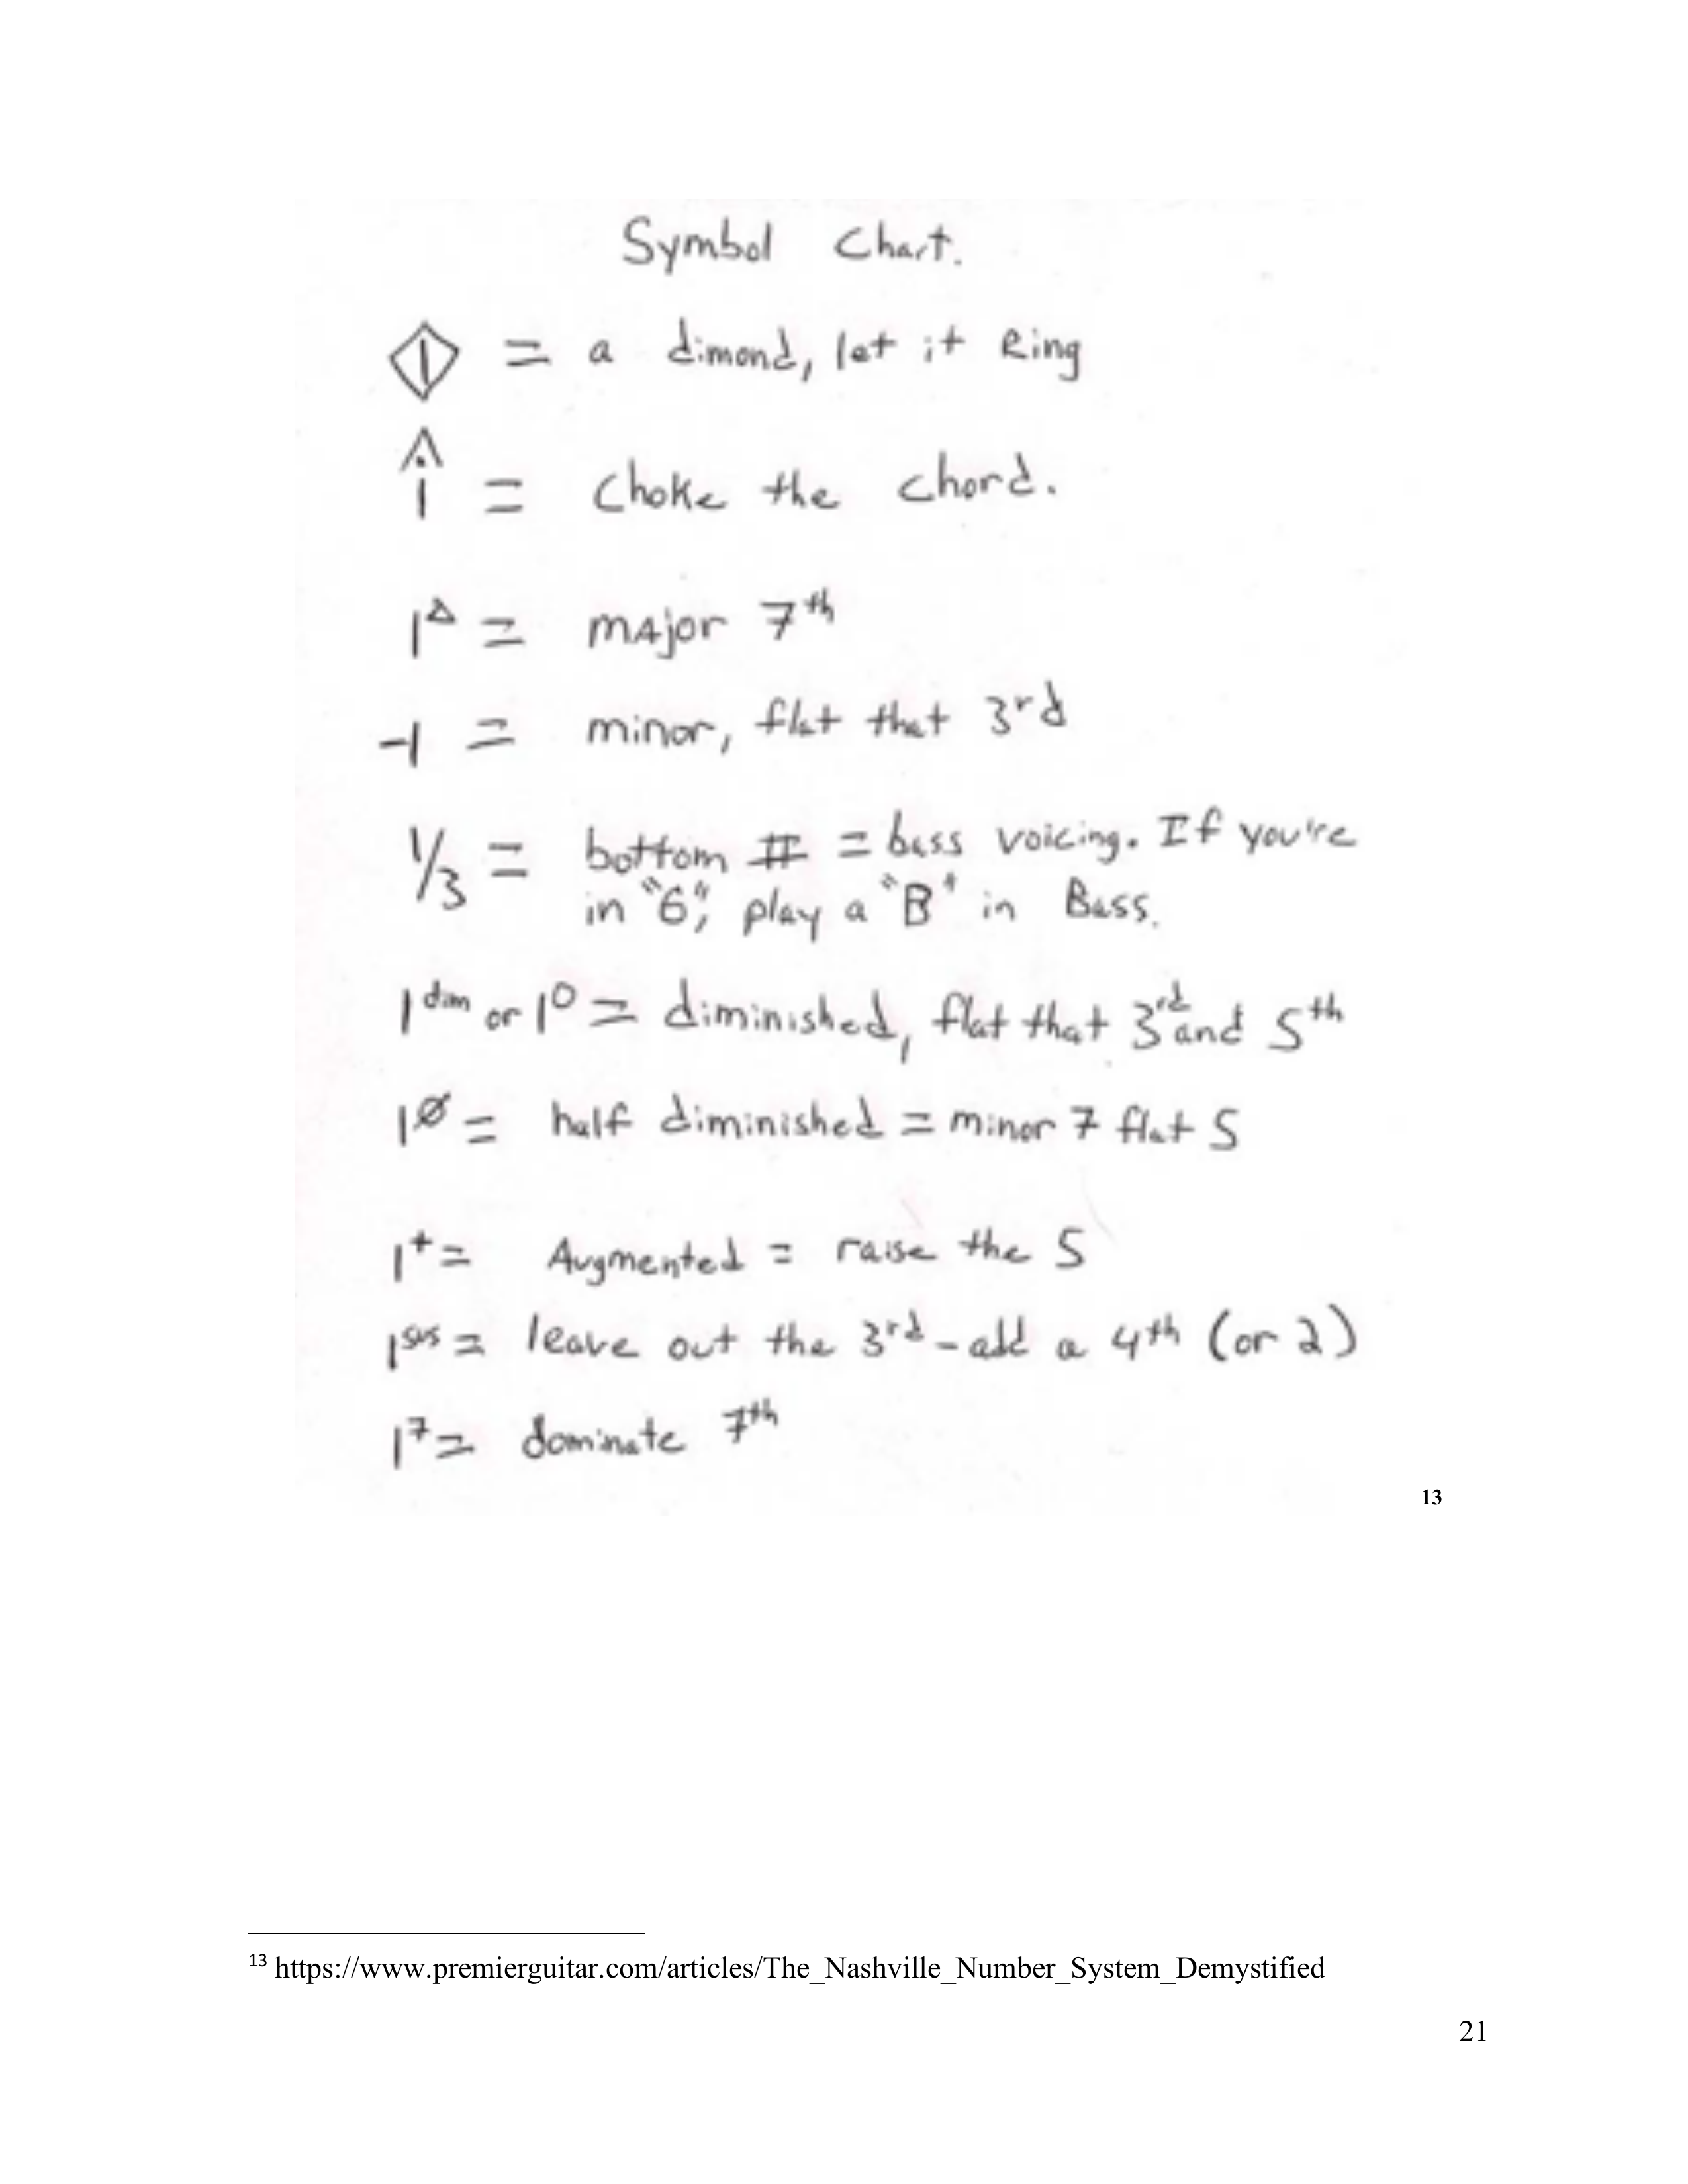 Symbol Chart.
1 = a dimond, let it Ring
^
1 = Choke the chord.
1△ = major 7th
-1 = minor, flat that 3rd
1/3 = bottom # = bass voicing. If you're
in "G", play a "B" in Bass.
1dim or 1O = diminished, flat that 3rd and 5th
1ø = half diminished = minor 7 flat 5
1+ = Augmented = raise the 5
1sus = leave out the 3rd - add a 4th (or 2)
17 = dominate 7th
13
13 https://www.premierguitar.com/articles/The_Nashville_Number_System_Demystified
21